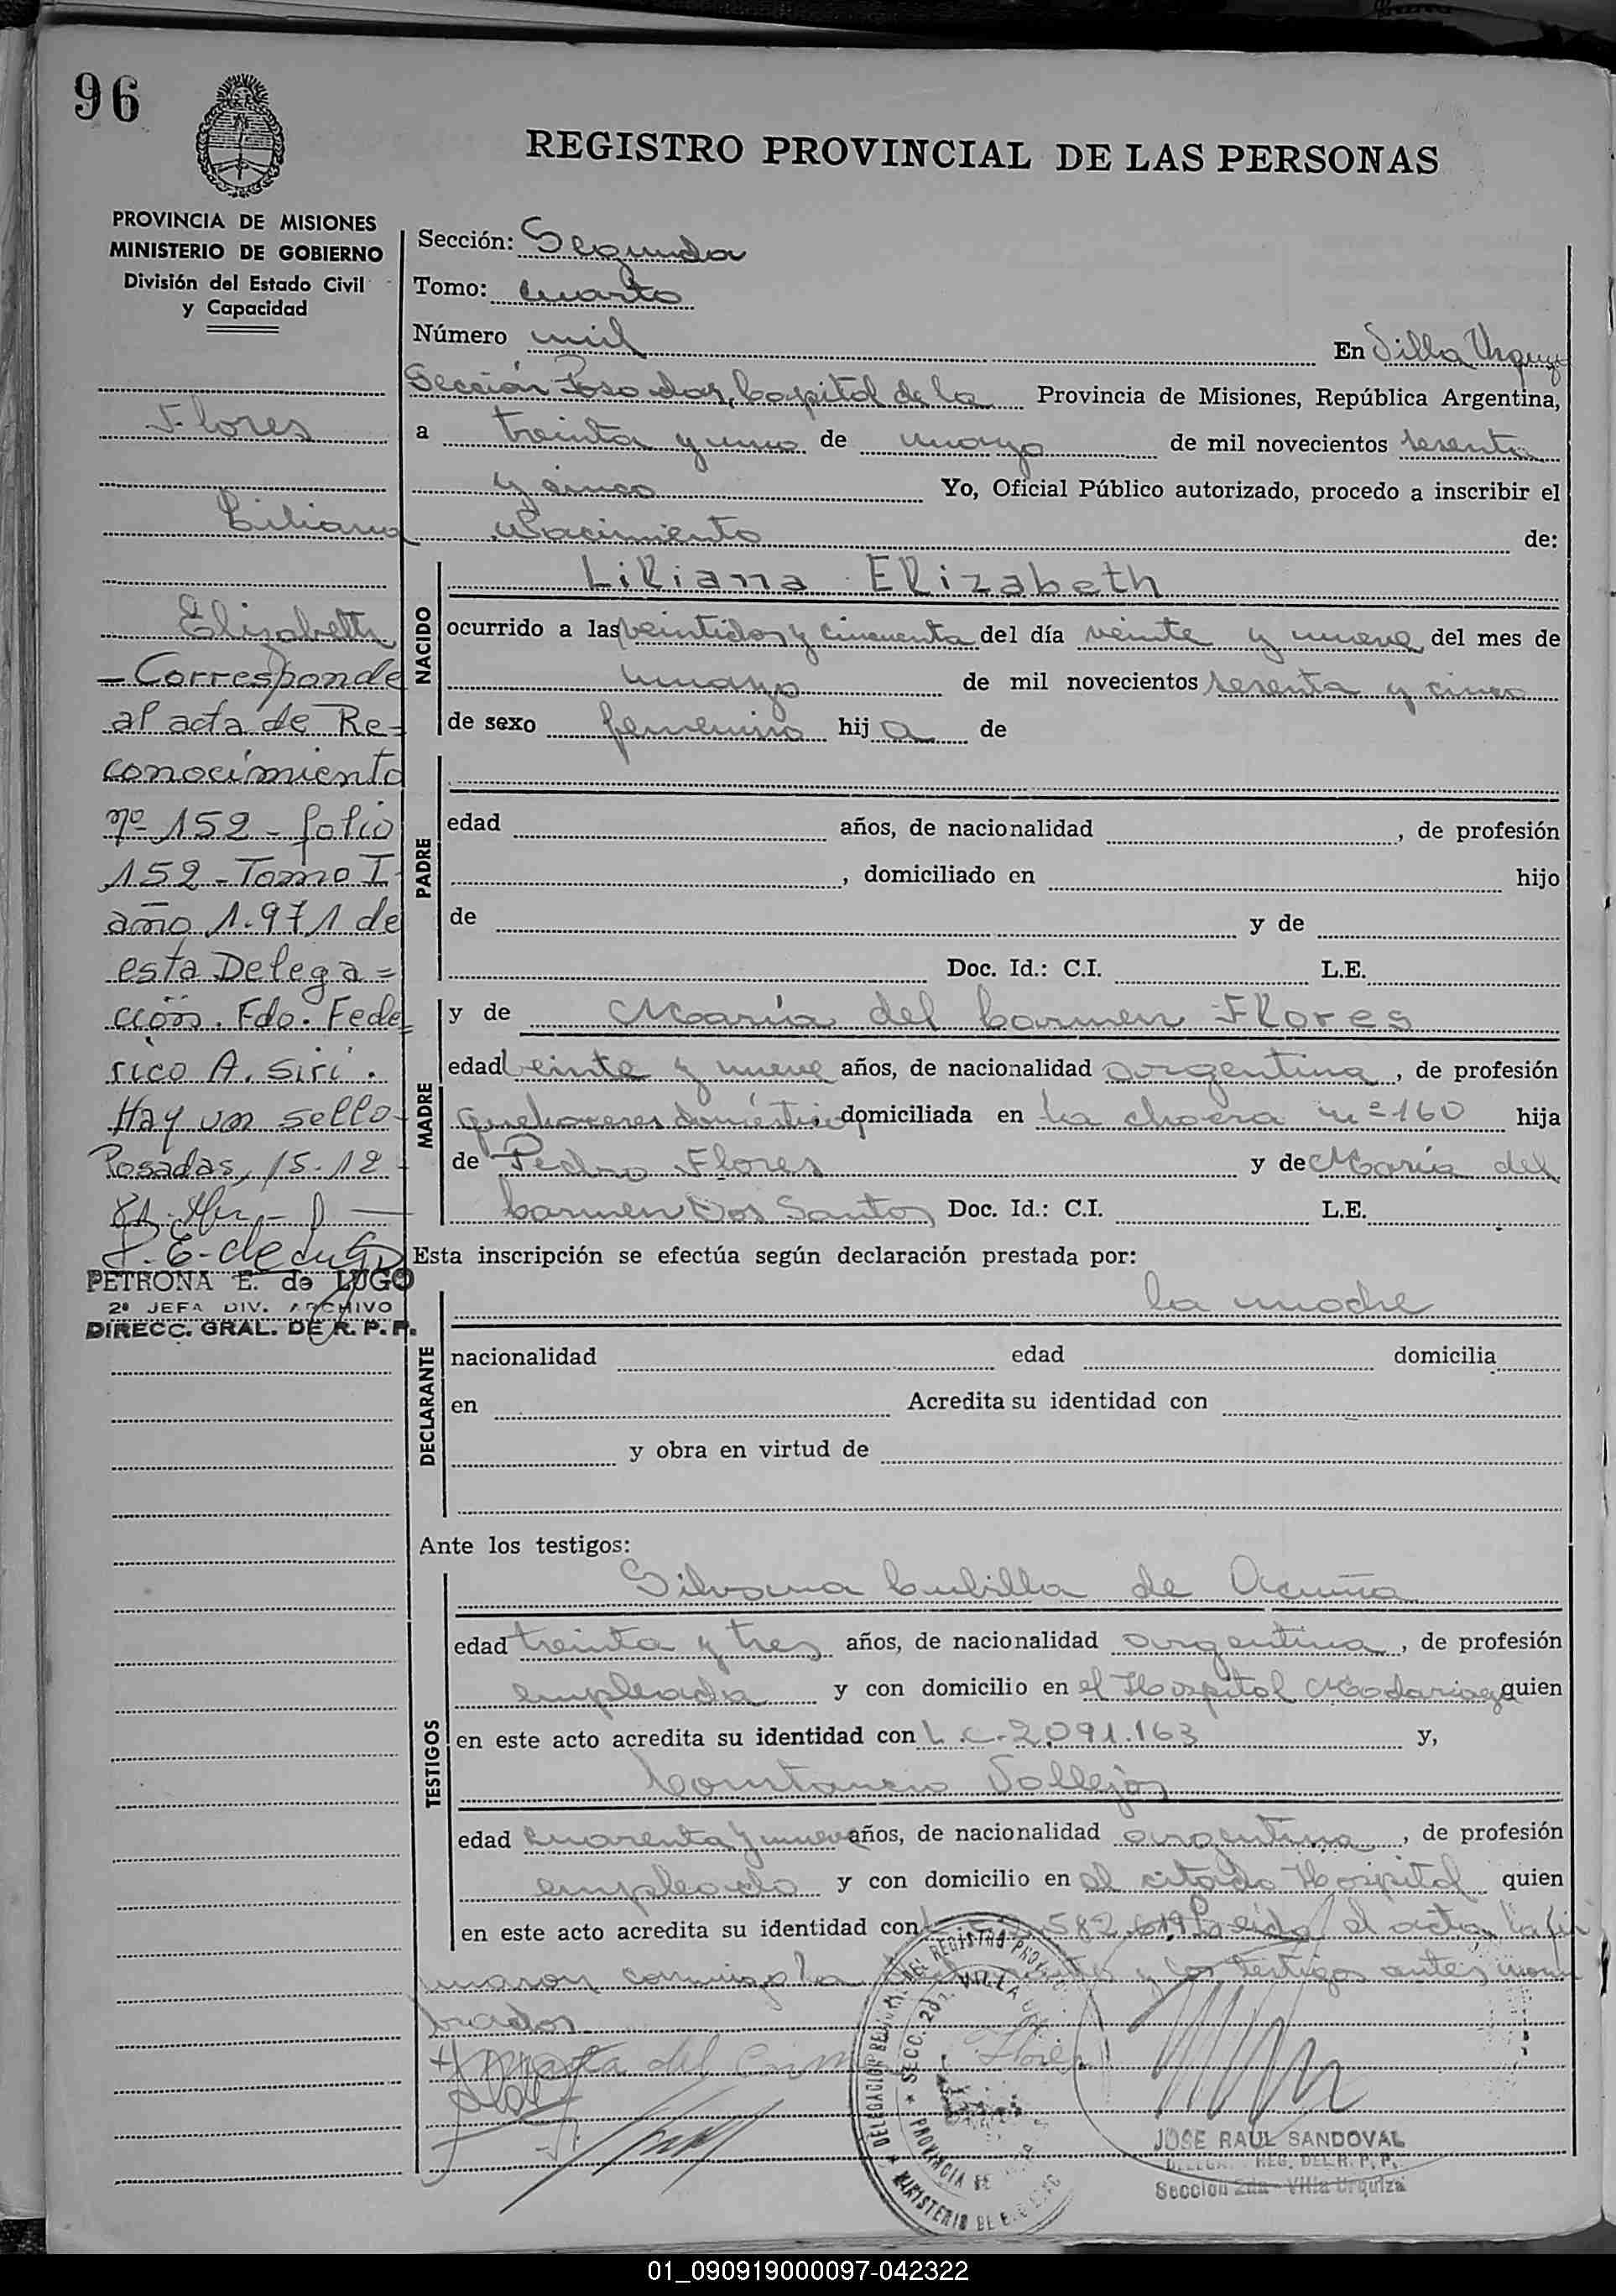 96
REGISTRO PROVINCIAL DE LAS PERSONAS
PROVINCIA DE MISIONES
MINISTERIO DE GOBIERNO
División del Estado Civil
y Capacidad
Flores
Liliana
Elizabeth
- Corresponde
al acta de Re=
conocimiento
nº 152 - folio
152 - Tomo I
año 1.971 de
esta Delega=
ción. Fdo. Fede=
rico A. Siri.
Hay un sello -
Posadas, 15-12
81.
P. E. de Lugo
PETRONA E. de LUGO
2ª JEFA DIV. ARCHIVO
DIRECC. GRAL. DE R. P. P.
Sección: Segunda
Tomo: cuarto
Número mil En Villa Urquiza
Sección Posadas, Capital de la Provincia de Misiones, República Argentina,
a treinta y uno de mayo de mil novecientos sesenta
y cinco Yo, Oficial Público autorizado, procedo a inscribir el
Nacimiento de:
NACIDO
Liliana Elizabeth
ocurrido a las veintidos y cincuenta del día veinte y nueve del mes de
mayo de mil novecientos sesenta y cinco
de sexo femenino hija de
PADRE
edad años, de nacionalidad , de profesión
, domiciliado en hijo
de y de
Doc. Id.: C.I. L.E.
MADRE
y de María del Carmen Flores
edad veinte y nueve años, de nacionalidad argentina, de profesión
quehaceres domésticos domiciliada en la chacra nº 160 hija
de Pedro Flores y de María del
Carmen Dos Santos Doc. Id.: C.I. L.E.
Esta inscripción se efectúa según declaración prestada por:
DECLARANTE
la madre
nacionalidad edad domicilia
en Acredita su identidad con
y obra en virtud de
Ante los testigos:
TESTIGOS
Silvana Cubilla de Acuña
edad treinta y tres años, de nacionalidad argentina, de profesión
empleada y con domicilio en el Hospital Madariaga quien
en este acto acredita su identidad con L.C. 2.091.163 y,
Constancio Vallejos
edad cuarenta y nueve años, de nacionalidad argentina, de profesión
empleado y con domicilio en el citado Hospital quien
en este acto acredita su identidad con 582.619 Leida el acta la fir
maron conmigo la y los testigos antes nom
brados
María del Carmen Flores
DELEGACION REGIONAL DEL REGISTRO PROV.
SECC. 2da. VILLA
PROVINCIA DE
MINISTERIO DE
JOSE RAUL SANDOVAL
DELEGA. REG. DEL R. P. P.
Sección 2da - Villa Urquiza
01_090919000097-042322